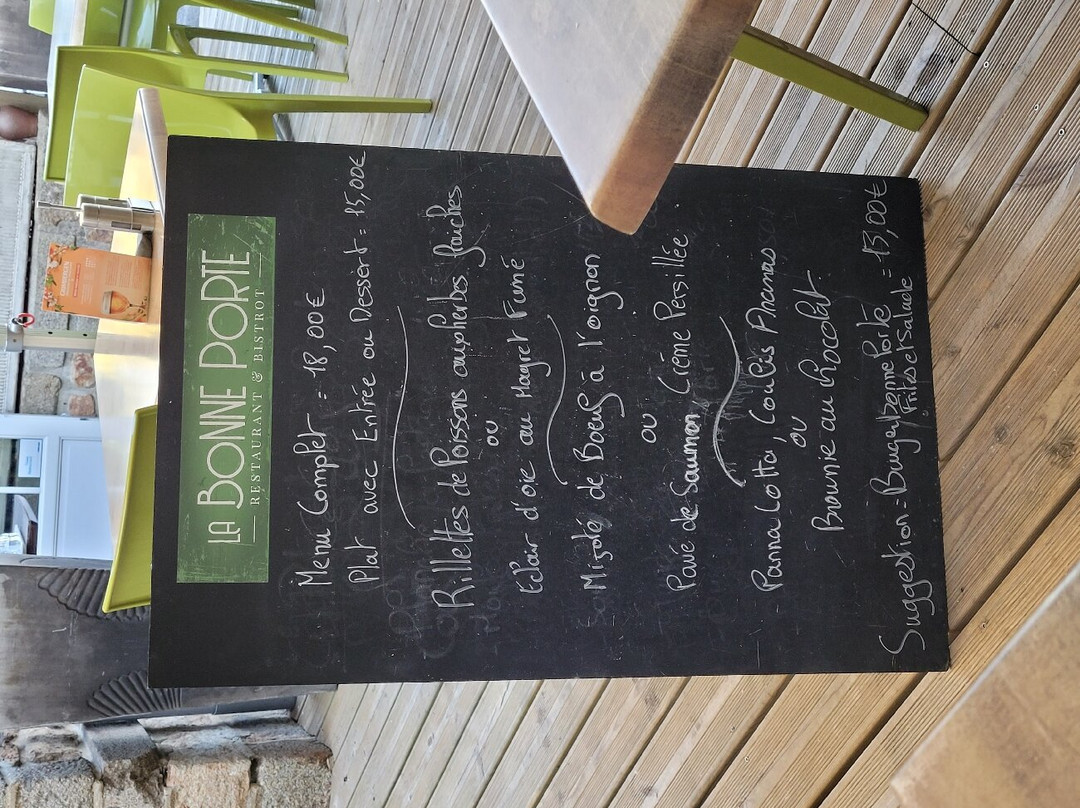 LA BONNE PORTE
RESTAURANT & BISTROT
Menu Complet = 18,00€
Plat avec Entrée ou Dessert = 15,00€
Rillettes de Poissons aux herbes fraiches
ou
Eclair d'oie au Magret Fumé
Mijoté de Boeuf à l'oignon
ou
Pavé de Saumon Crème Persillée
Panna Cotta, Coulis Ananas
ou
Brownie au chocolat
Suggestion = Burger Bonne Porte = 15,00€
Frites et Salade